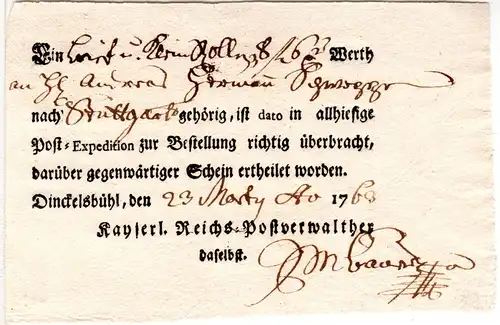 Ein brief u. Klein Rollen Werth
an H. Andreas Hermann
nach Stuttgart gehörig, ist dato in allhiesige
Post-Expedition zur Bestellung richtig überbracht,
darüber gegenwärtiger Schein ertheilet worden.
Dinckelsbühl, den 23 Marty Ao 1768
Kayserl. Reichs-Postverwalther
daselbst.